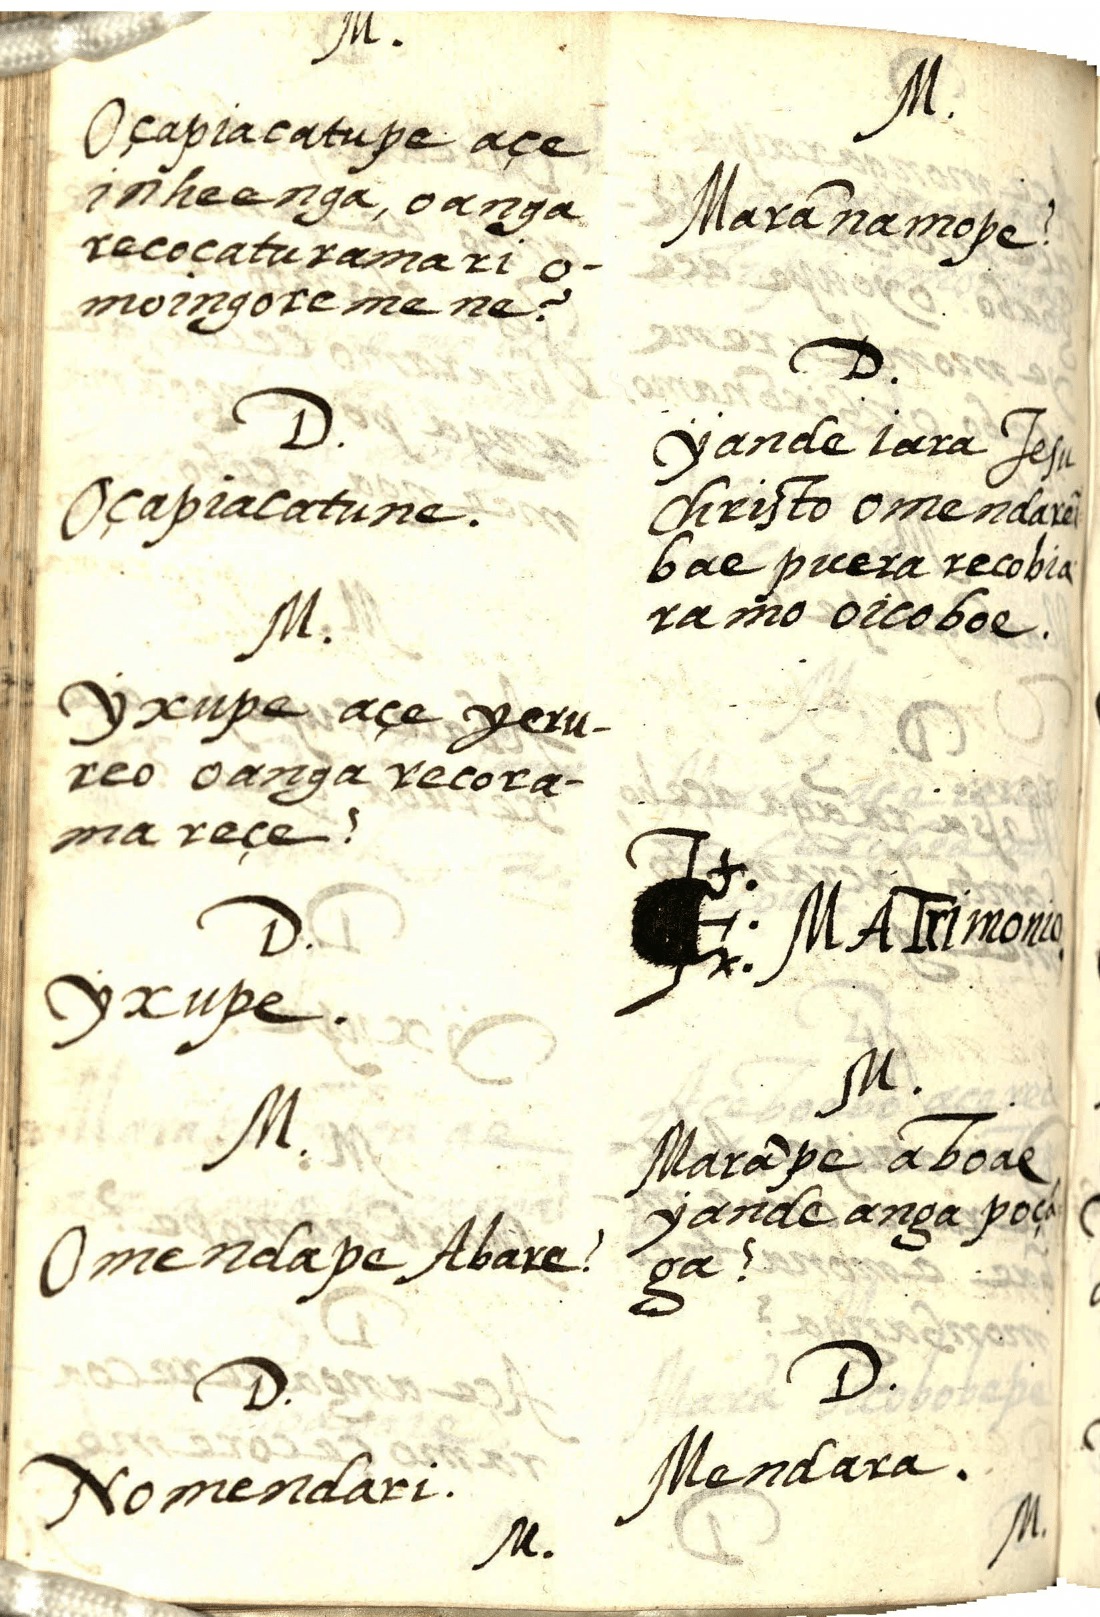 M.
Oçapiacatupe açe
inheenga, oanga
recocaturamari o-
moingoreme ne?
D.
Oçapiacatune.
M.
Yxupe açe yeru-
reo oanga recora-
ma reçe?
D.
Yxupe.
M.
Omendape Abare?
D.
Nomendari.
M.
M.
Marãnamope?
D.
Yande iara Jesu
Christo omendareĩ
bae puera recobia
ramo oicoboe.
MATrimonio
M.
Marãpe aboae
yande anga poçã
ga?
D.
Mendara.
M.